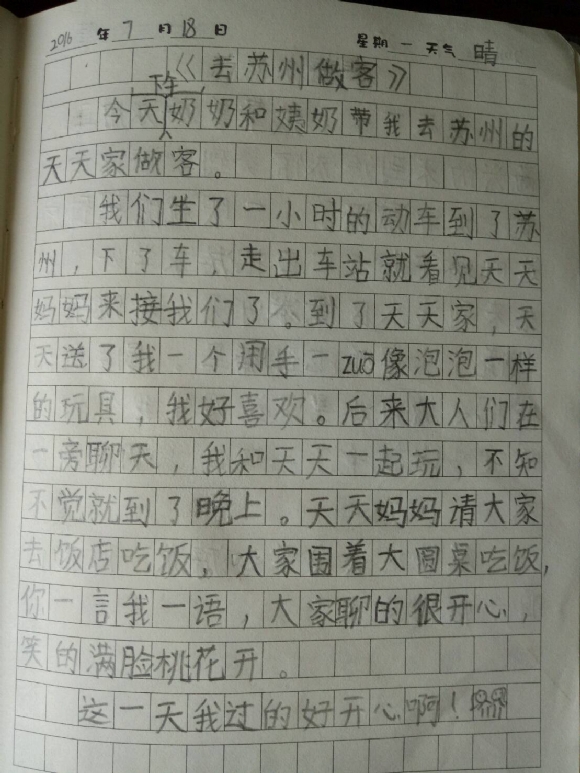 2016年7月18日 星期一天气晴
《去苏州做客》
下午
今天奶奶和姨奶带我去苏州的
天天家做客。
我们坐了一小时的动车到了苏
州，下了车，走出车站就看见天天
妈妈来接我们了。到了天天家，天
天送了我一个用手一zuō像泡泡一样
的玩具，我好喜欢。后来大人们在
一旁聊天，我和天天一起玩，不知
不觉就到了晚上。天天妈妈请大家
去饭店吃饭，大家围着大圆桌吃饭，
你一言我一语，大家聊的很开心，
笑的满脸桃花开。
这一天我过的好开心啊！